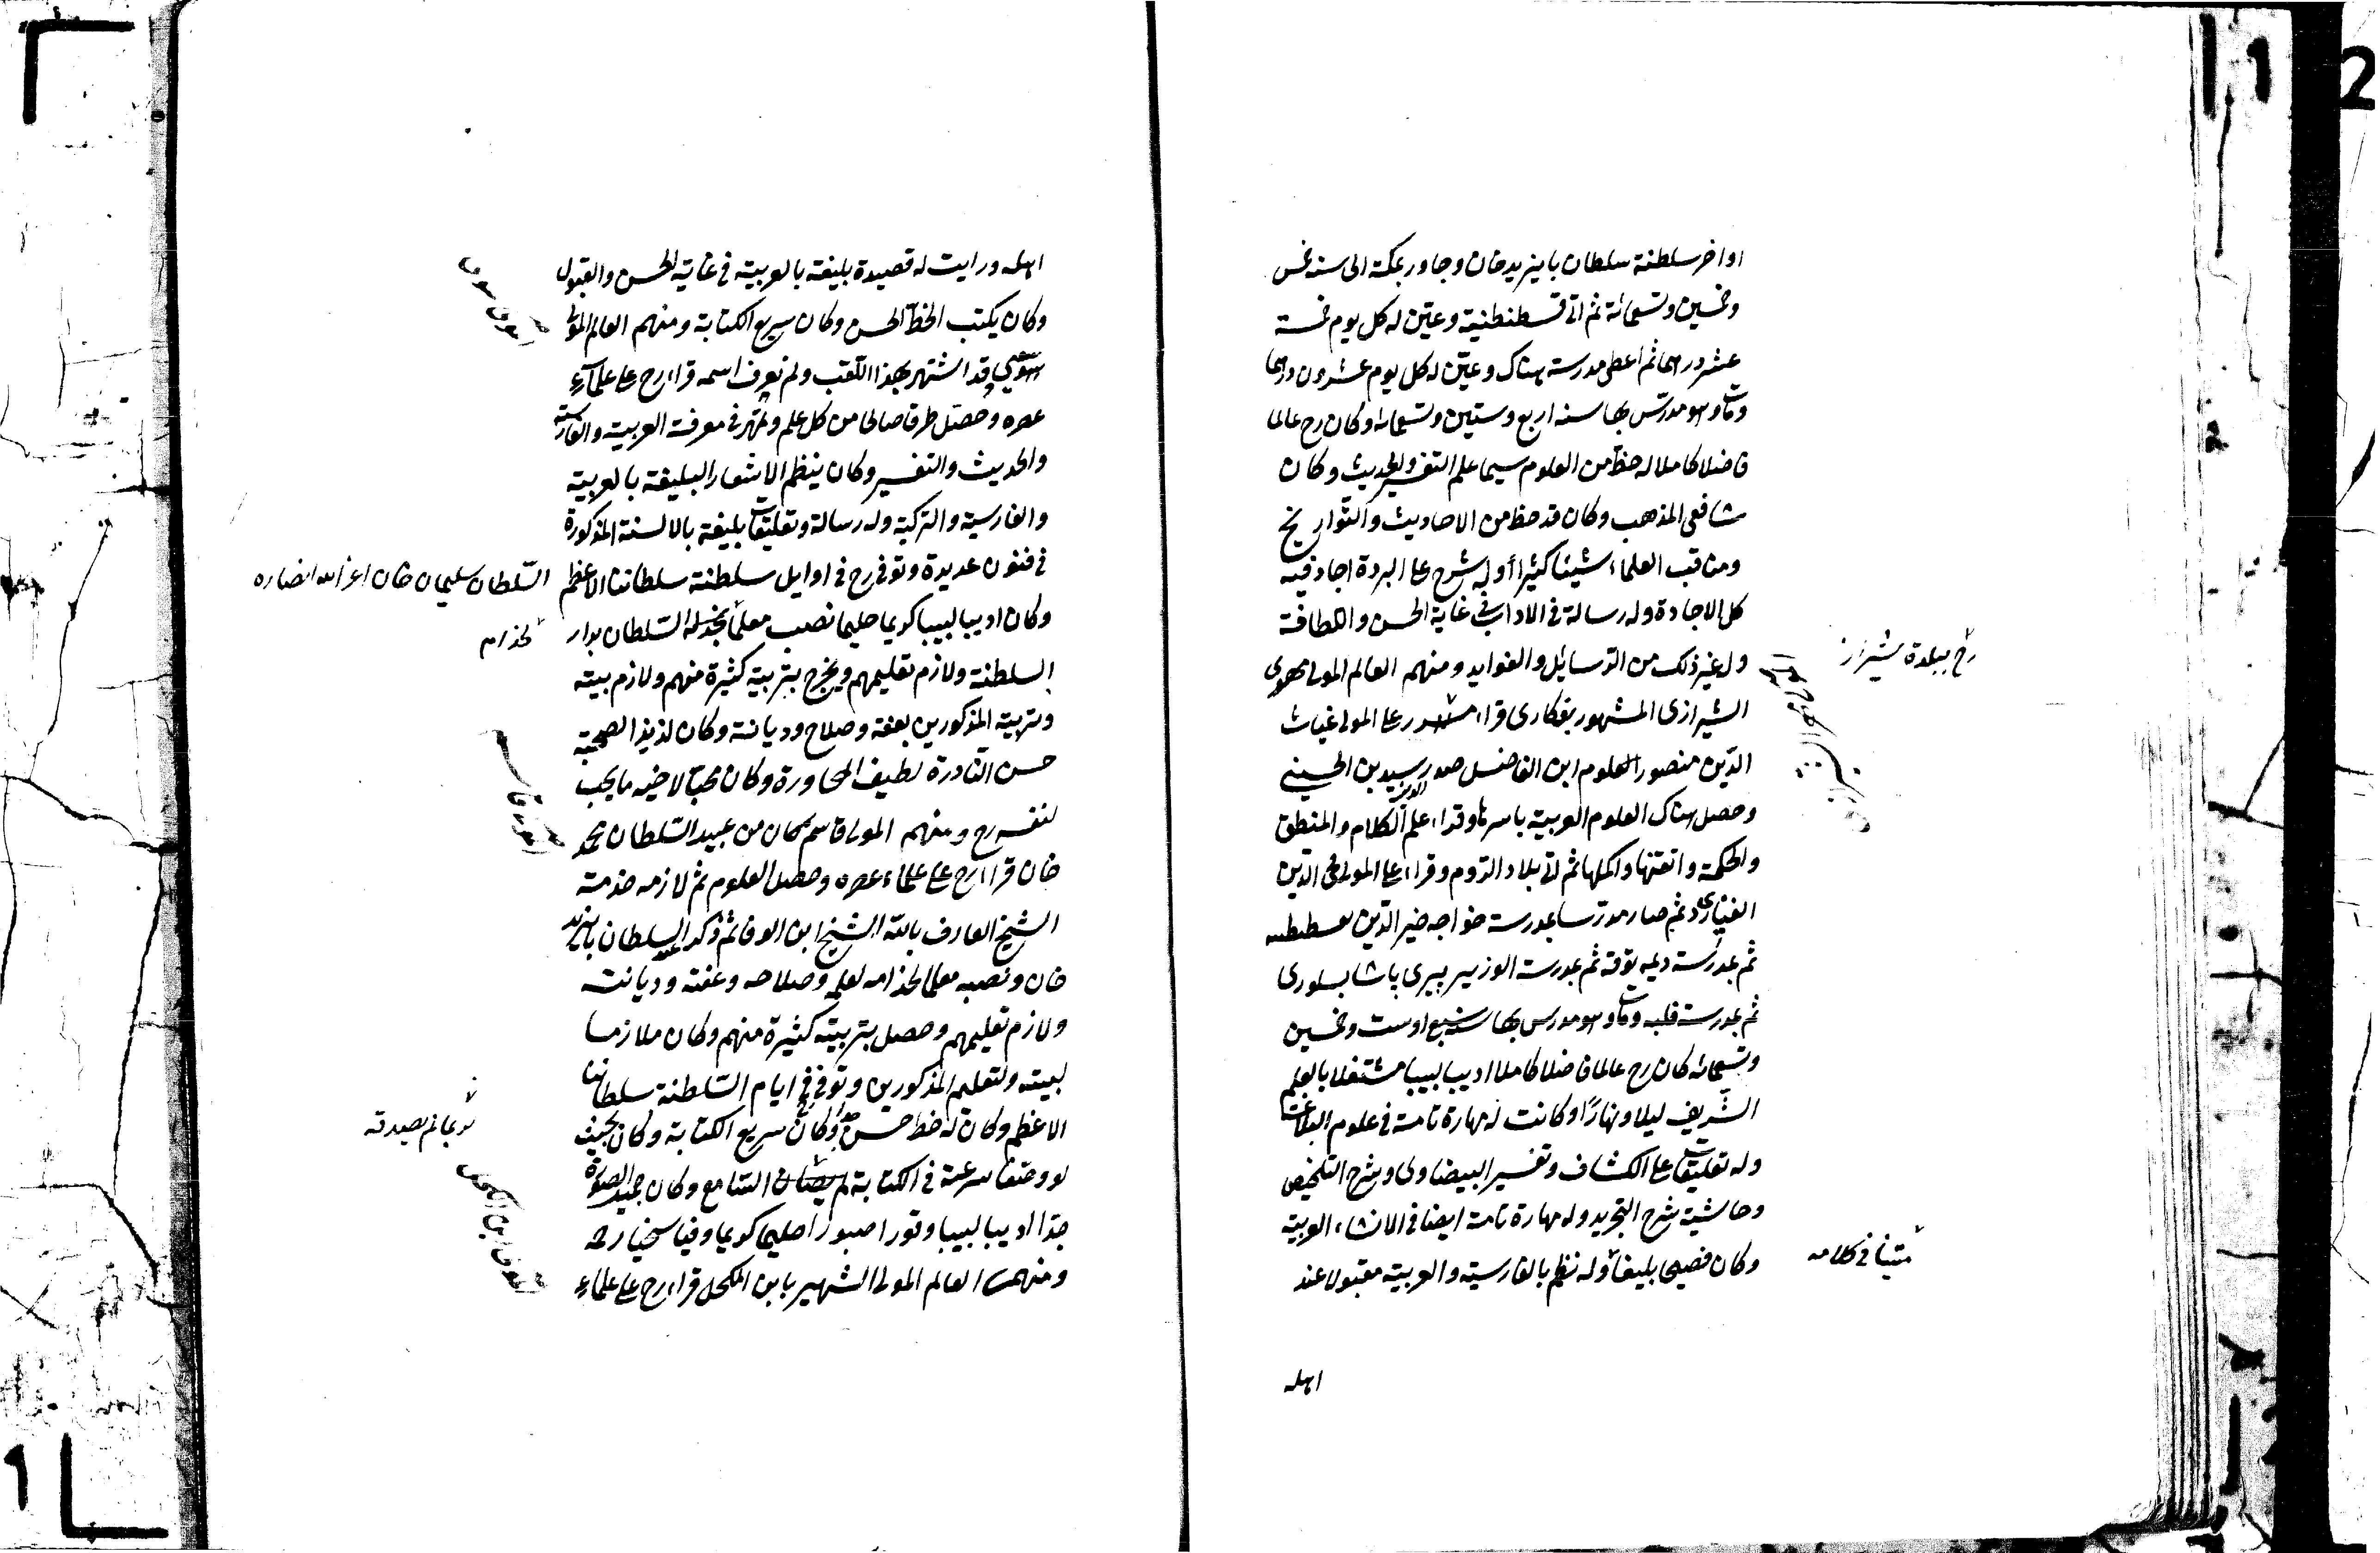 اواخر سلطنة سلطان بايزيد خان وجاور بمكة الى سنة خمس
وخمسين وتسعمائة ثم اتى قسطنطنية وعيّن له كل يوم خمسة
عشر درهما ثم اعطى مدرسة هناك وعيّن له كل يوم عشرون درهما
ومات وهو مدرّس بها سنة اربع وستين وتسعمائة وكان رح عالما
فاضلا كاملا له حظ من العلوم سيما علم التفسير والحديث وكان
شافعى المذهب وكان قد حفظ من الاحاديث والتواريخ
ومناقب العلماء شيئا كثيرا وله شرح على البردة اجاد فيه
كل الاجادة وله رسالة فى الاداب فى غاية الحسن واللطافة
وله غير ذلك من الرسائل والفوايد ومنهم العالم المولى
الشيرازى المشهور بفكارى قراء على المولى غياث
رح ببلدة شيراز
الدّين منصور العلوم ابن الفاضل صدر سيد بن الحسينى
وحصل هناك العلوم العربية باسرها وقراء علم الكلام والمنطق
والحكمة واتقنها واكملها ثم اتى بلاد الرّوم وقراء على المولى محى الدّين
الفنارى ثم صار مدرّسا بمدرسة خواجه خير الدّين
ثم بمدرسة ديمه توقه ثم بمدرسة الوزير پيرى پاشا بسلورى
ثم بمدرسة فلبه ومات وهو مدرس بها سنة سبع او ست وخمسين
وتسعمائة كان رح عالما فاضلا كاملا اديبا لبيبا مشتغلا بالعلم
الشّريف ليلا ونهارًا وكانت له مهارة تامة فى علوم البلاغت
وله تعليقات على الكشاف وتفسير البيضاوى وشرح التلخيص
وحاشية شرح التجريد وله مهارة تامة ايضا فى الانشاء العربية
وكان فصيحا بليغا وله نظم بالفارسية والعربية مقبول عند
متينا فى كلامه
اهله
اهله ورايت له قصيدة بليغة بالعربية فى غاية الحسن والقبول
وكان يكتب الخطّ الحسن وكان سريع الكتابة ومنهم العالم المولى
قد اشتهر بهذا اللّقب ولم نعرف اسمه قراء رح على علمآءِ
عصره وحصّل طرفا صالحا من كل علم وتمهّر فى معرفة العربية والفارسية
والحديث والتفسير وكان ينظم الاشعار البليغة بالعربية
والفارسية والتركية وله رسالة وتعليقات بليغة بالالسنة المذكورة
فى فنون عديدة وتوفى رح فى اوايل سلطنة سلطاننا الاعظم
السّلطان سليمان خان اعز الله انصاره
وكان اديبا لبيبا كريما حليما نصب معلّما السّلطان بدار
لخدام
السلطنة ولازم تعليمهم وتخرج بتربية كثيرة منهم ولازم بيته
وتربية المذكورين بعفة وصلاح وديانة وكان لذيذ الصحبة
حسن النّادرة لطيف المحاورة وكان محبّا لاخيه ما يحب
لنفسه رح ومنهم المولى قاسم كان من عبيد السّلطان محمد
خان قراء رح على علماء عصره وحصل العلوم ثم لازمه خدمة
الشيخ العارف بالله الشيخ ابن الوفا ثم السلطان بايزيد
خان ونصبه معلما لخدامه لعلمه وصلاحه وعفته وديانته
ولازم تعليمهم وحصل بتربيته كثيرة منهم وكان ملازما
لبيته ولتعليم المذكورين وتوفى فى ايام السّلطنة سلطاننا
الاعظم وكان له خط حسن وكان سريع الكتابة وكان بحيث
لو وصفنا سرعته فى الكتابة السّامع وكان جميل الصورة
جدّا اديبا لبيبا وقورا صبورا حليما كريما وفيا سخيا رحه
ومنهم العالم المولى الشهير بابن المكحل قراء رح على علماءِ
المولى قاسم